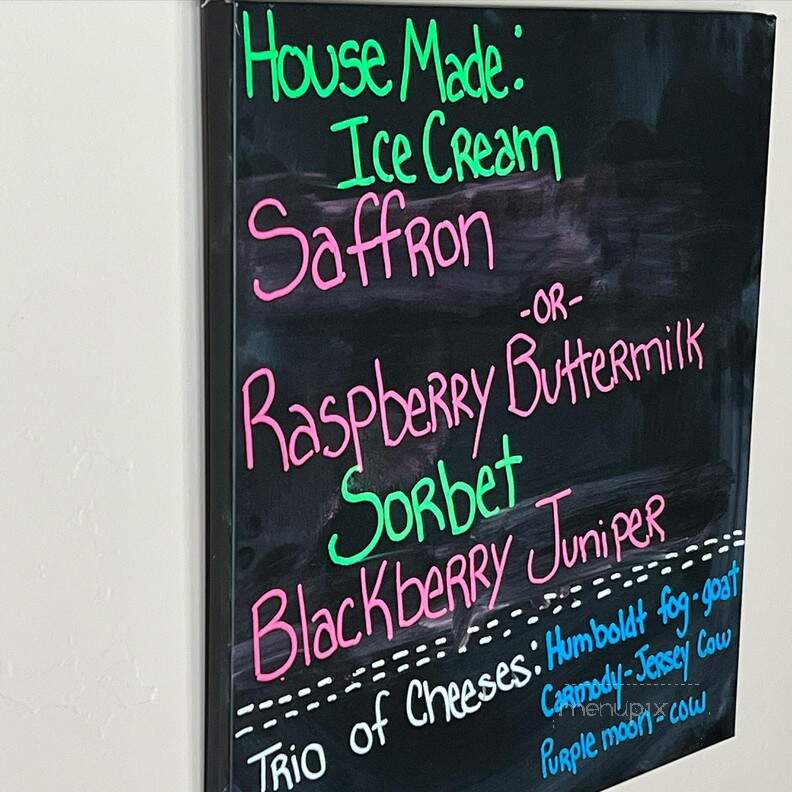 House Made:
Ice Cream
Saffron
-OR-
Raspberry Buttermilk
Sorbet
Blackberry Juniper
Trio of Cheeses:
Humboldt fog-goat
Carmody-Jersey Cow
Purple moon-cow
menupix